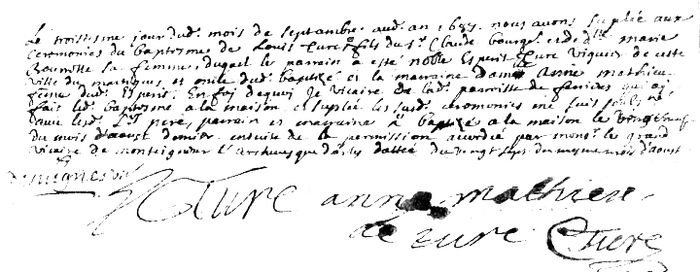 Le troisiesme jour dud. mois de septembre aud. an 1687 nous avons suplée aux
Ceremonies du baptesme de Louis Ture fils du Sr. Claude bourg. et de dlle marie
sa femme duquel le parrain a esté noble Esperit Ture Viguier de cette
ville du martigues et oncle dud. baptizé et la marraine dame Anne mathieu
femme dud. Esperit. En foy dequoy Je Vicaire de lad. parroisse de
fait led. baptesme a la maison et suplée les susd. ceremonies me suis
avec lesd. parrain et marraine baptizé a la maison le vingt
du mois d'aoust dernier ensuite de la permission accordée par monsr. le grand
Vicaire de monseigneur l'Archevesque d'Arles dattée du vingt sept du mesme mois d'aoust
Ture anne mathieu
de ture Ture